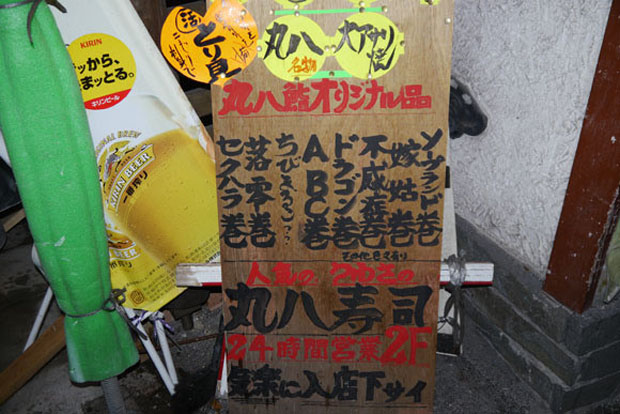 KIRIN
から、
まっとる。
キリンビール
KIRIN BEER
一番搾り
活
とり貝
丸八
名物
大アサリ
丸八鮨オリジナル品
ソープランド巻
嫁姑巻
不成者巻
ドラゴン巻
ABC巻
ちびきゅうこ??
落雫巻
セクハラ巻
その他色々有り
人気の
丸八寿司
24時間営業2F
気楽に入店下サイ